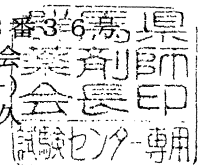 番36号
県
薬剤師
会長印
試験センター専用